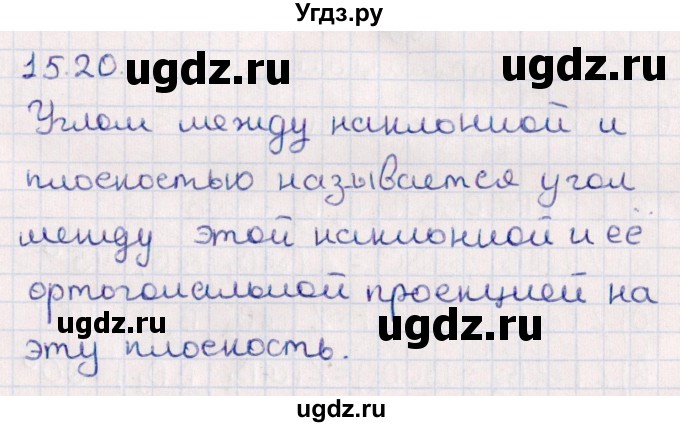 Угдз.ру
15.20.
ugdz.ru
ugdz.ru
Углом между наклонной и
плоскостью называется угол
между этой наклонной и её
ортогональной проекцией на
ugdz.ru
ugdz.ru
эту плоскость.
ugdz.ru